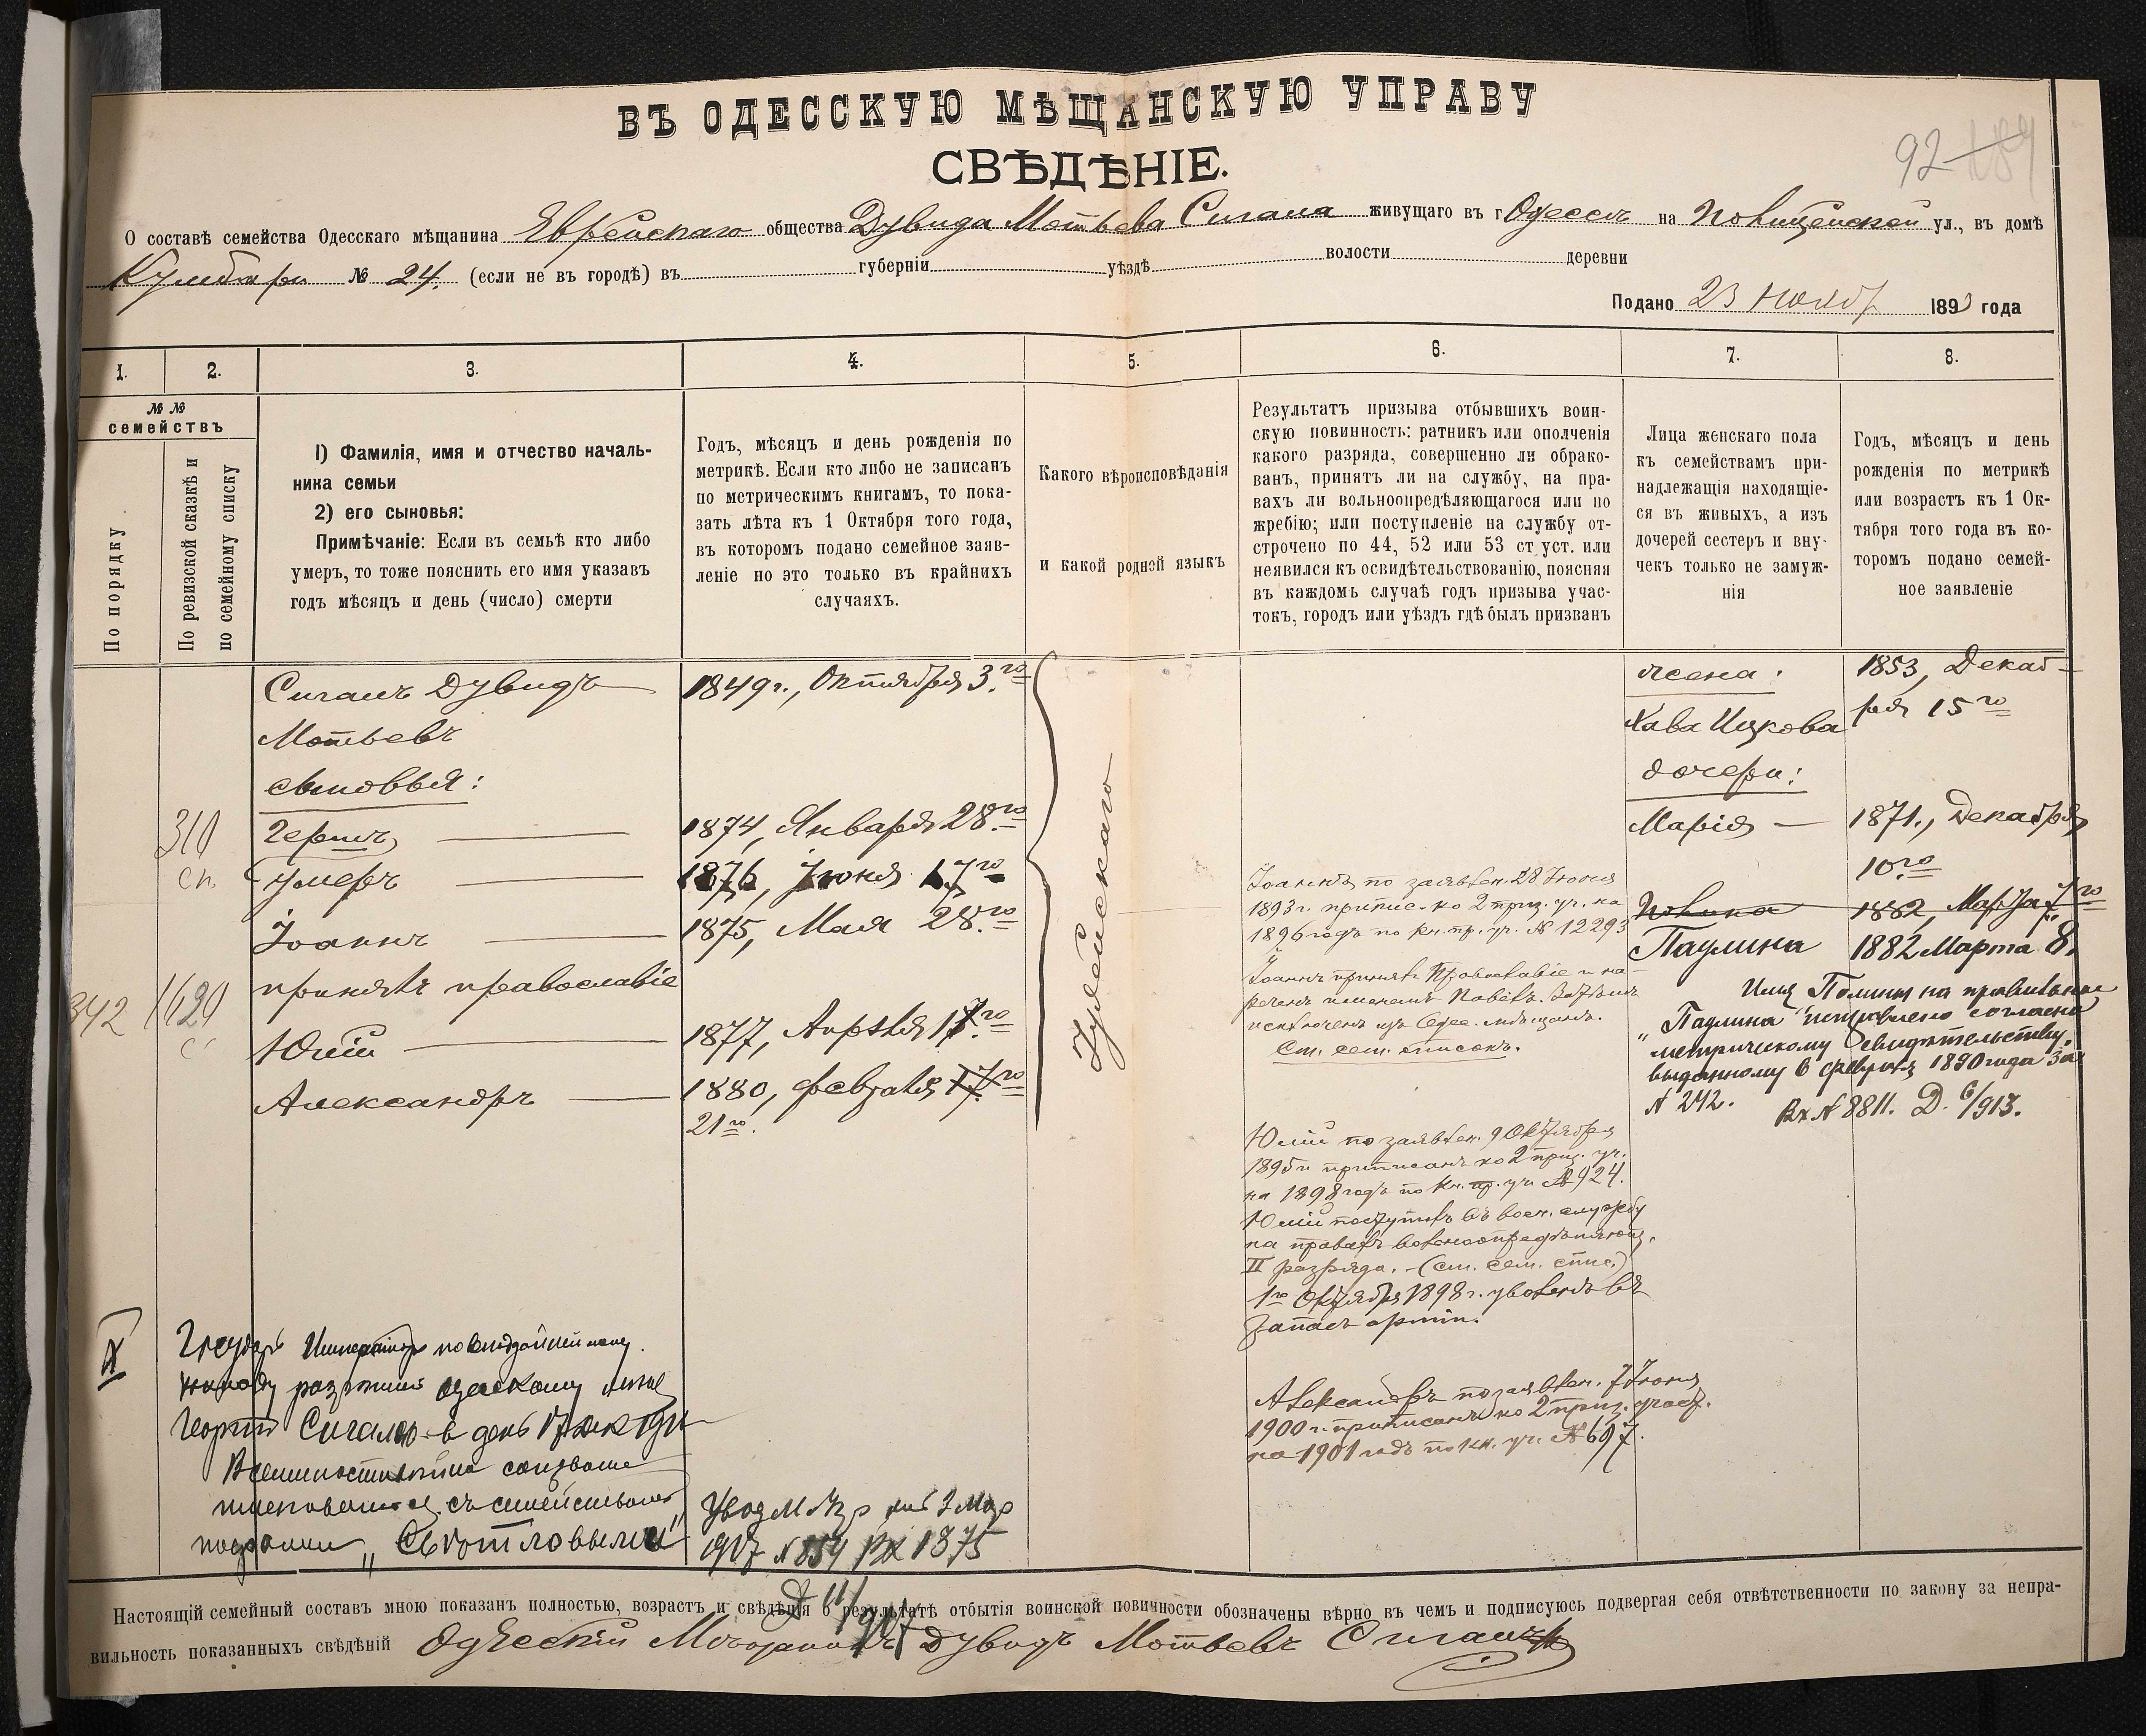 ВЪ ОДЕССКУЮ МѢЩАНСКУЮ УПРАВУ
СВѢДѢНІЕ.
92
О составѣ семейства Одесскаго мѣщанина Еврейскаго общества Дувида Мотьева Сигала живущаго въ г Одессѣ на Полицейской ул., въ домѣ
№ 24. (если не въ городѣ) въ губерніи уѣздѣ волости деревни
Подано 23 Ноябр 1893 года
1. 2. 3. 4. 5. 6. 7. 8.
№ №
семействъ
По порядку
По ревизской сказкѣ и
по семейному списку
1) Фамилія, имя и отчество началь-
ника семьи
2) его сыновья:
Примѣчаніе: Если въ семьѣ кто либо
умеръ, то тоже пояснить его имя указавъ
годъ мѣсяцъ и день (число) смерти
Годъ, мѣсяцъ и день рожденія по
метрикѣ. Если кто либо не записанъ
по метрическимъ книгамъ, то пока-
зать лѣта къ 1 Октября того года,
въ которомъ подано семейное заяв-
леніе но это только въ крайнихъ
случаяхъ.
Какого вѣроисповѣданія
и какой родной языкъ
Результатъ призыва отбывшихъ воин-
скую повинность: ратникъ или ополченія
какого разряда, совершенно ли обрако-
ванъ, принятъ ли на службу, на пра-
вахъ ли вольноопредѣляющагося или по
жребію; или поступленіе на службу от-
строчено по 44, 52 или 53 ст уст. или
неявился къ освидѣтельствованію, поясняя
въ каждомъ случаѣ годъ призыва учас-
токъ, городъ или уѣздъ гдѣ былъ призванъ
Лица женскаго пола
къ семействамъ при-
надлежащія находящіе-
ся въ живыхъ, а изъ
дочерей сестеръ и вну-
чекъ только не замуж-
нія
Годъ, мѣсяцъ и день
рожденія по метрикѣ
или возрастъ къ 1 Ок-
тября того года въ ко-
торомъ подано семей-
ное заявленіе
Сигалъ Дувидъ
Мотьевъ
сыновья:
310
Гершъ
сп.
умеръ
Іоаннъ
принялъ православіе
342
1620
Юлій
Александръ
1849 г., Октября 3.го
1874, Января 28.го
1876, Іюня 17го
1875, Мая 28.го
1877, Апрѣля 17.го
1880, февраля 17.го
21го.
Іудейскаго
Іоаннъ по заявлен. 28 Іюня
1893 г. припис. ко 2 приз. уч. на
1896 годъ по кн. пр. уч. № 12293
Іоаннъ принялъ Православіе и на-
реченъ именемъ Павелъ.
исключенъ изъ Одес. мѣщанъ.
См. сем. списокъ.
Юлій по заявлен. 9 Октября
1895 г. приписанъ ко 2 приз. уч.
на 1898 годъ по кн. пр. уч. № 924.
Юлій поступилъ въ воен. службу
на правахъ вольноопредѣляющ.
II разряда. - (см. сем. спис.)
1го Октября 1898 г. уволенъ въ
запасъ арміи.
Александръ по заявлен. 7 Іюня
1900 г. приписанъ ко 2 приз. участ.
на 1901 годъ по кн. уч. № 697.
жена:
Хава Ицкова
дочери:
Марія
Полина
Паулина
1853, Декаб-
ря 15го
1871., Декабря
10го
1882, Марта 7го
1882 Марта 8.
Имя Полины на правильное
"Паулина" исправлено согласно
метрическому свидѣтельству,
выданному 6 февраля 1890 года за
№ 242. Вх № 8811. Д. 6/913.
Государь Императоръ по
Георгію Сигалъ въ день 17 дек
Всемилостивѣйше соизволи
именоваться съ семействомъ
"Свѣтловымъ"
1907 № 854 Вх 1375
Д 11/907
Настоящій семейный составъ мною показанъ полностью, возрастъ и свѣдѣнія о результатѣ отбытія воинской повинности обозначены вѣрно въ чемъ и подписуюсь подвергая себя отвѣтственности по закону за непра-
вильность показанныхъ свѣдѣній Одескій Дувидъ Мотьевъ Сигалъ